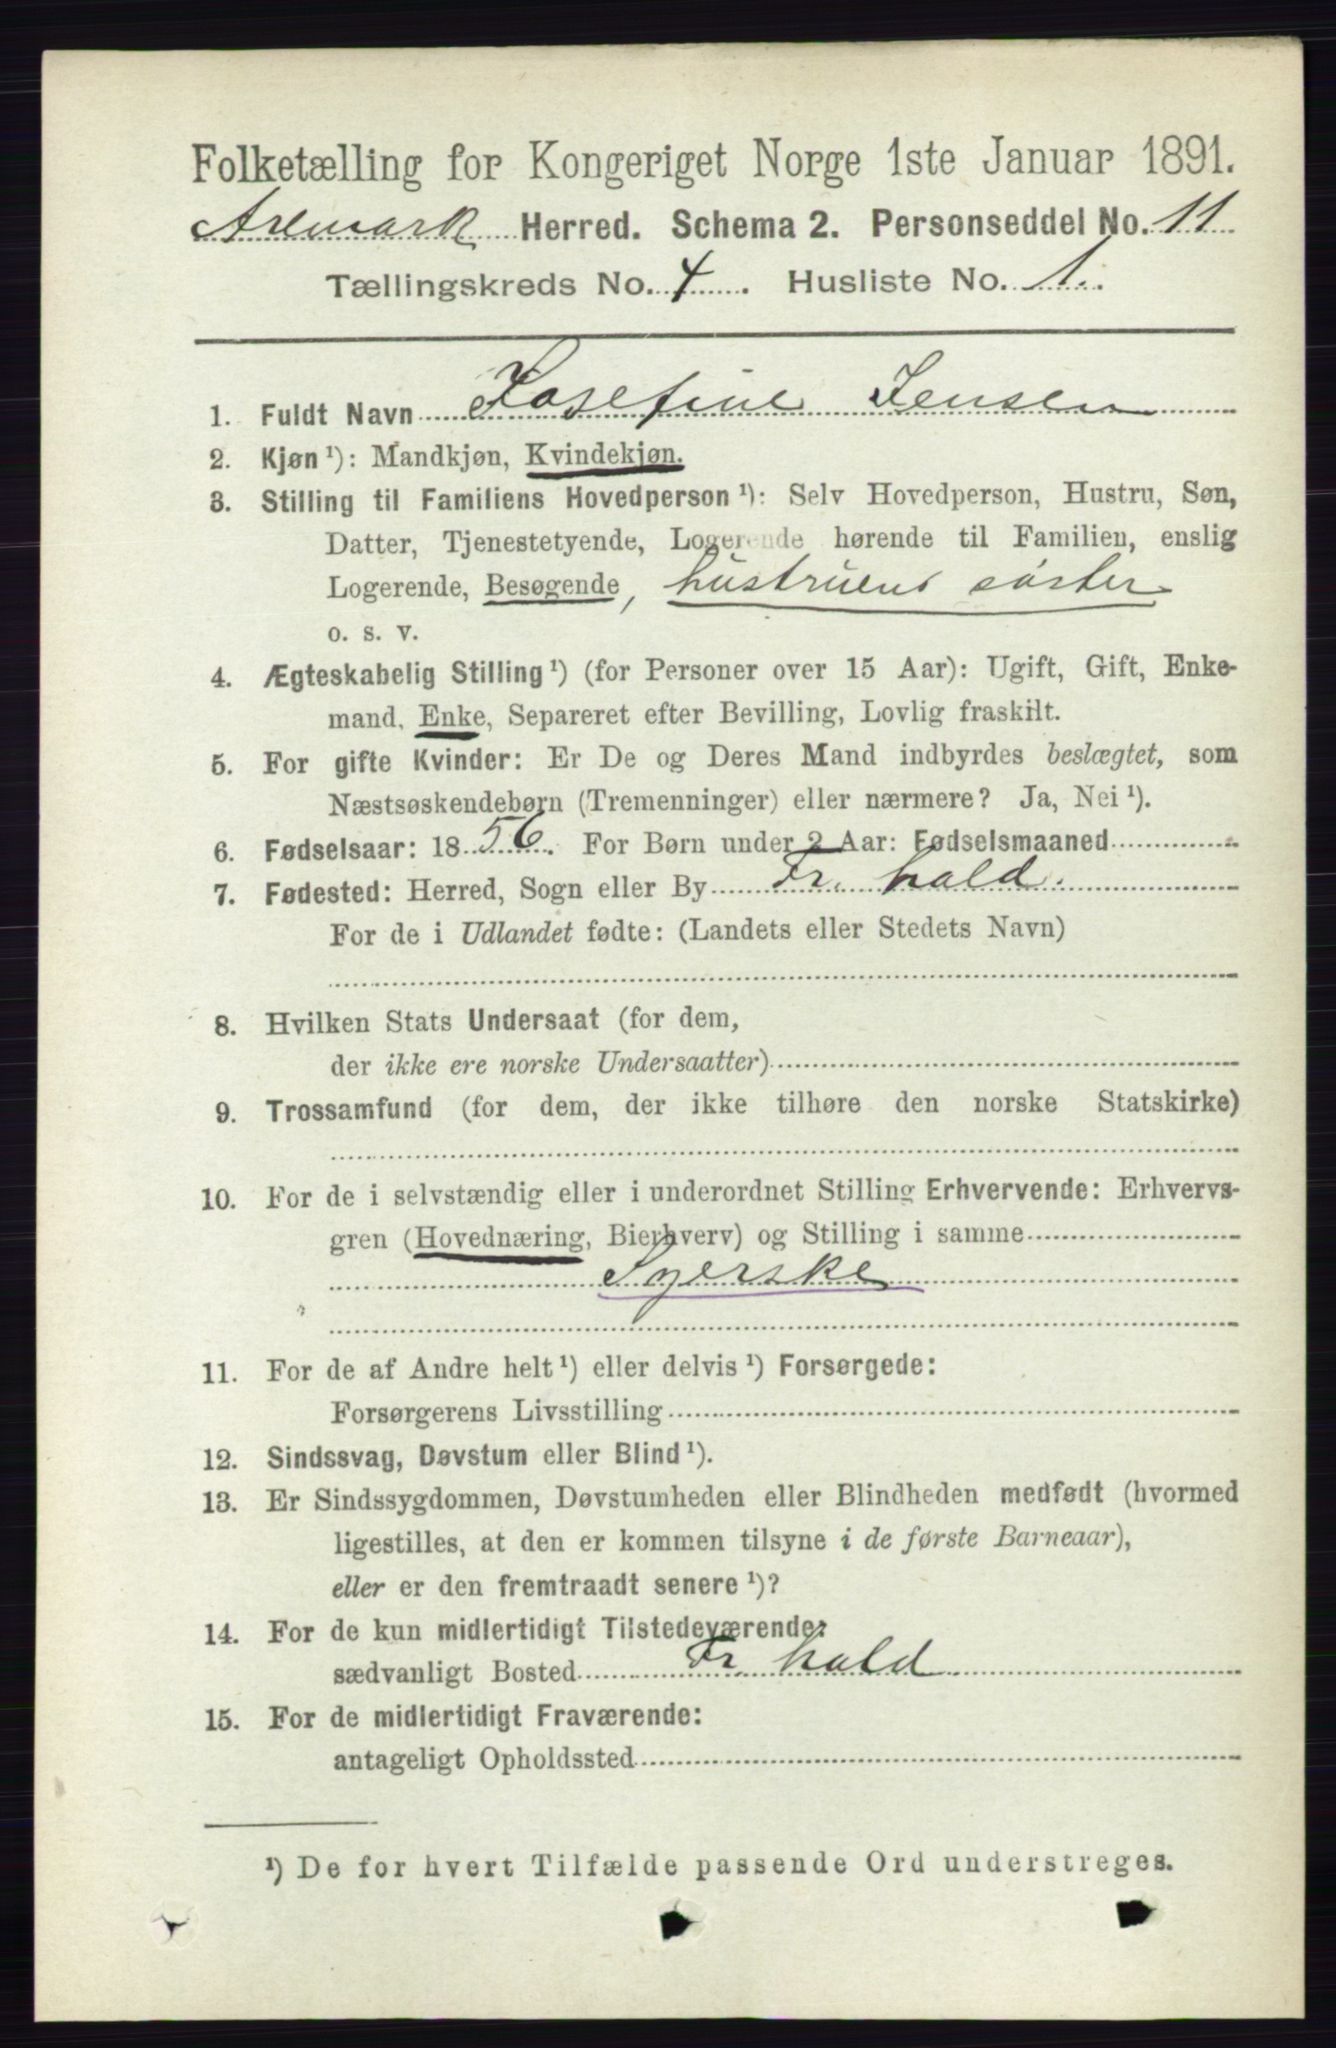 Folketælling for Kongeriget Norge 1ste Januar 1891.
Aremark Herred. Schema 2. Personseddel No. 11
Tællingskreds No. 4. Husliste No. 1.
1. Fuldt Navn Josefine Jensen
2. Kjøn ¹): Mandkjøn, Kvindekjøn.
3. Stilling til Familiens Hovedperson ¹): Selv Hovedperson, Hustru, Søn,
Datter, Tjenestetyende, Logerende hørende til Familien, enslig
Logerende, Besøgende, hustruens søster
o. s. v.
4. Ægteskabelig Stilling ¹) (for Personer over 15 Aar): Ugift, Gift, Enke-
mand, Enke, Separeret efter Bevilling, Lovlig fraskilt.
5. For gifte Kvinder: Er De og Deres Mand indbyrdes beslægtet, som
Næstsøskendebørn (Tremenninger) eller nærmere? Ja, Nei ¹).
6. Fødselsaar: 1856. For Børn under 2 Aar: Fødselsmaaned
7. Fødested: Herred, Sogn eller By Fr. hald.
For de i Udlandet fødte: (Landets eller Stedets Navn)
8. Hvilken Stats Undersaat (for dem,
der ikke ere norske Undersaatter)
9. Trossamfund (for dem, der ikke tilhøre den norske Statskirke)
10. For de i selvstændig eller i underordnet Stilling Erhvervende: Erhvervs-
gren (Hovednæring, Bierhverv) og Stilling i samme
Syerske
11. For de af Andre helt ¹) eller delvis ¹) Forsørgede:
Forsørgerens Livsstilling
12. Sindssvag, Døvstum eller Blind ¹).
13. Er Sindssygdommen, Døvstumheden eller Blindheden medfødt (hvormed
ligestilles, at den er kommen tilsyne i de første Barneaar),
eller er den fremtraadt senere ¹)?
14. For de kun midlertidigt Tilstedeværende:
sædvanligt Bosted Fr. hald
15. For de midlertidigt Fraværende:
antageligt Opholdssted
¹) De for hvert Tilfælde passende Ord understreges.